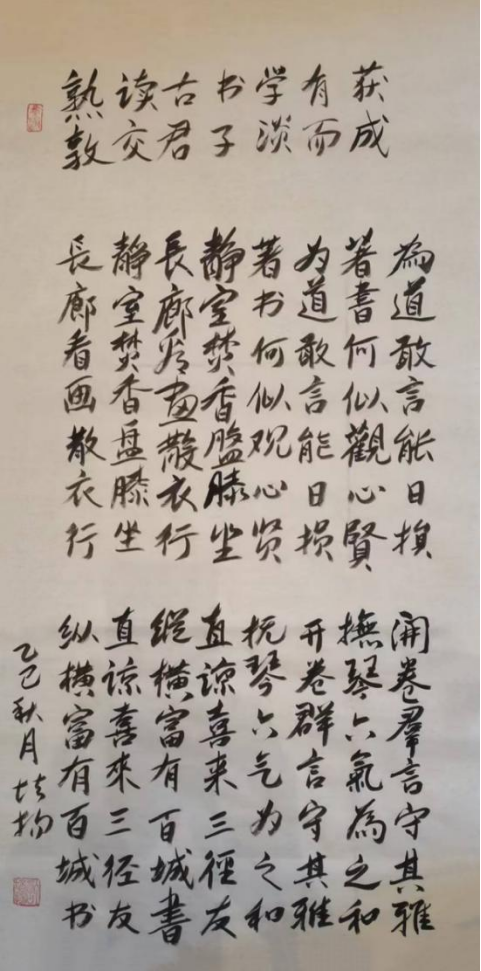 熟读古书学有获
敦交君子淡而成
為道敢言能日損
著書何似觀心賢
为道敢言能日损
著书何似观心贤
靜室焚香盤膝坐
長廊看畫散衣行
静室焚香盘膝坐
長廊看画散衣行
開卷羣言守其雅
撫琴六氣為之和
开卷群言守其雅
抚琴六气为之和
直諒喜来三徑友
縱橫富有百城書
直谅喜來三径友
纵横富有百城书
乙巳秋月